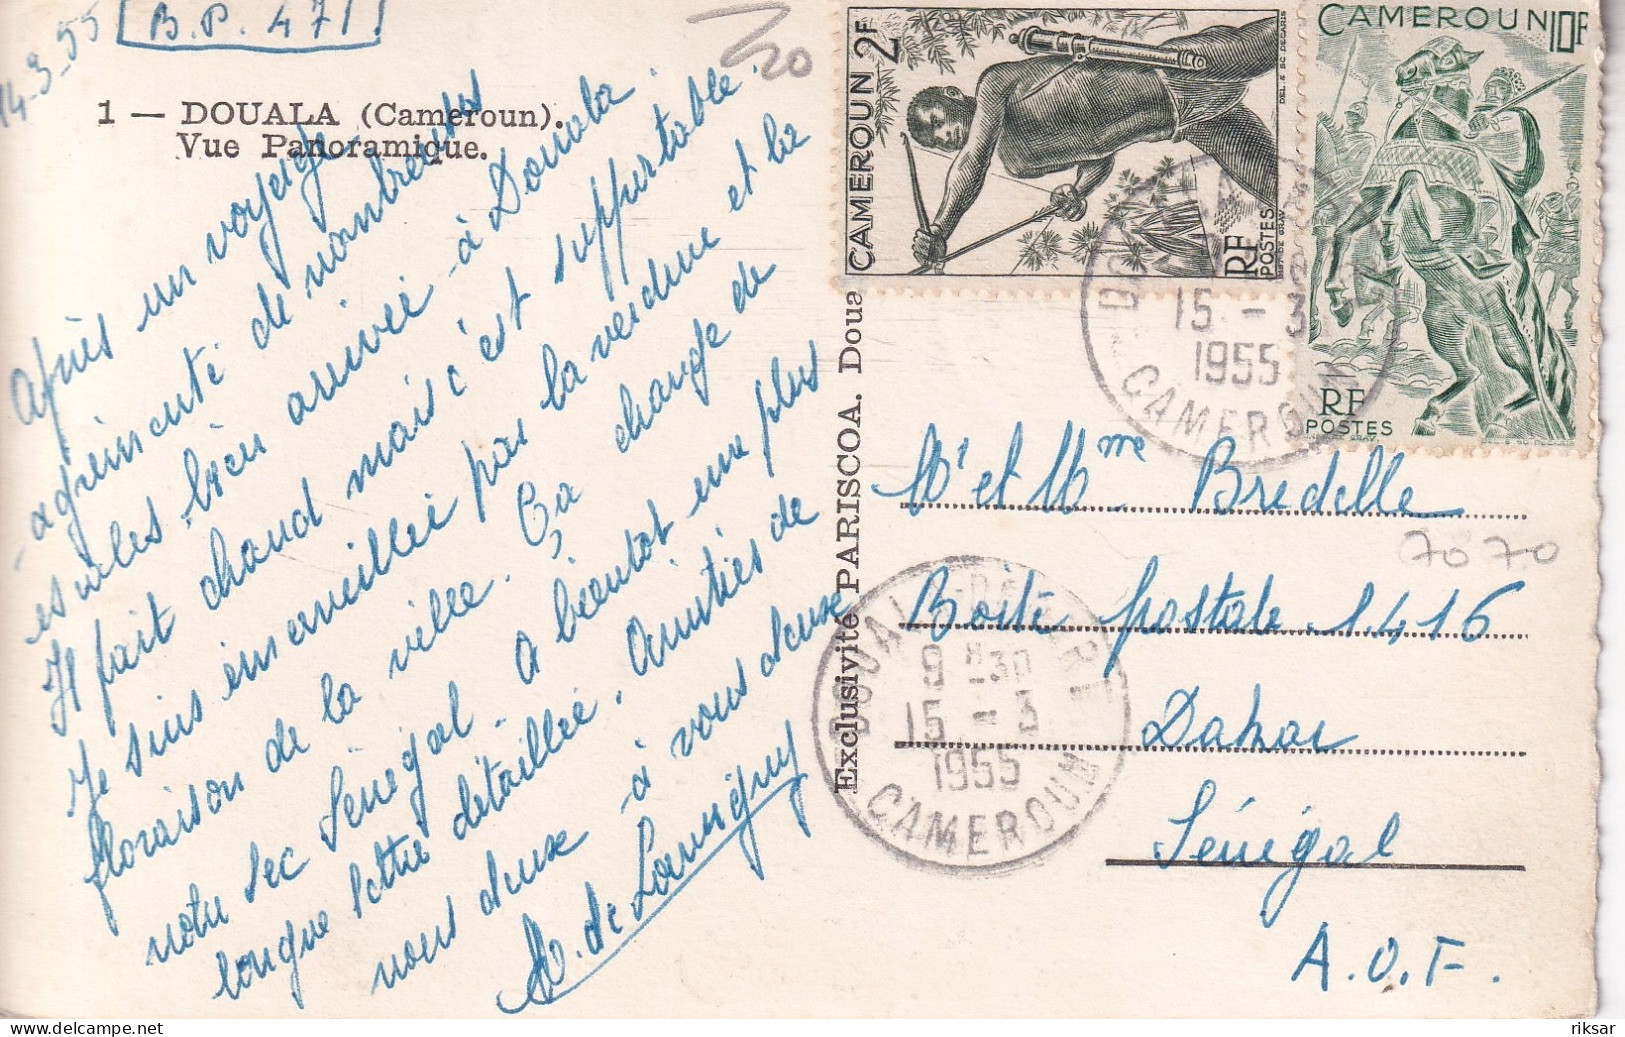 14-3-55
B.P. 471
1 — DOUALA (Cameroun).
Vue Panoramique.
Après un voyage
agrémenté de nombreuses
escales, bien arrivée à Douala.
Il fait chaud mais c'est supportable.
Je suis émerveillée par la verdure et la
floraison de la ville. Ça change de
notre sec Sénégal. A bientôt une plus
longue lettre détaillée. Amitiés de
nous deux à vous deux
de
20
CAMEROUN 2F
RF
POSTES
DEL. & SC. DECARIS
CAMEROUN 10F
RF
POSTES
DOUALA
15 - 3
1955
CAMEROUN
Exclusivité PARISCOA. Doua
Mr et Mme Bredelle
70 70
Boîte postale 1416
Dakar
Sénégal
A.O.F.
DOUALA
9H30
15 - 3
1955
CAMEROUN
riksar